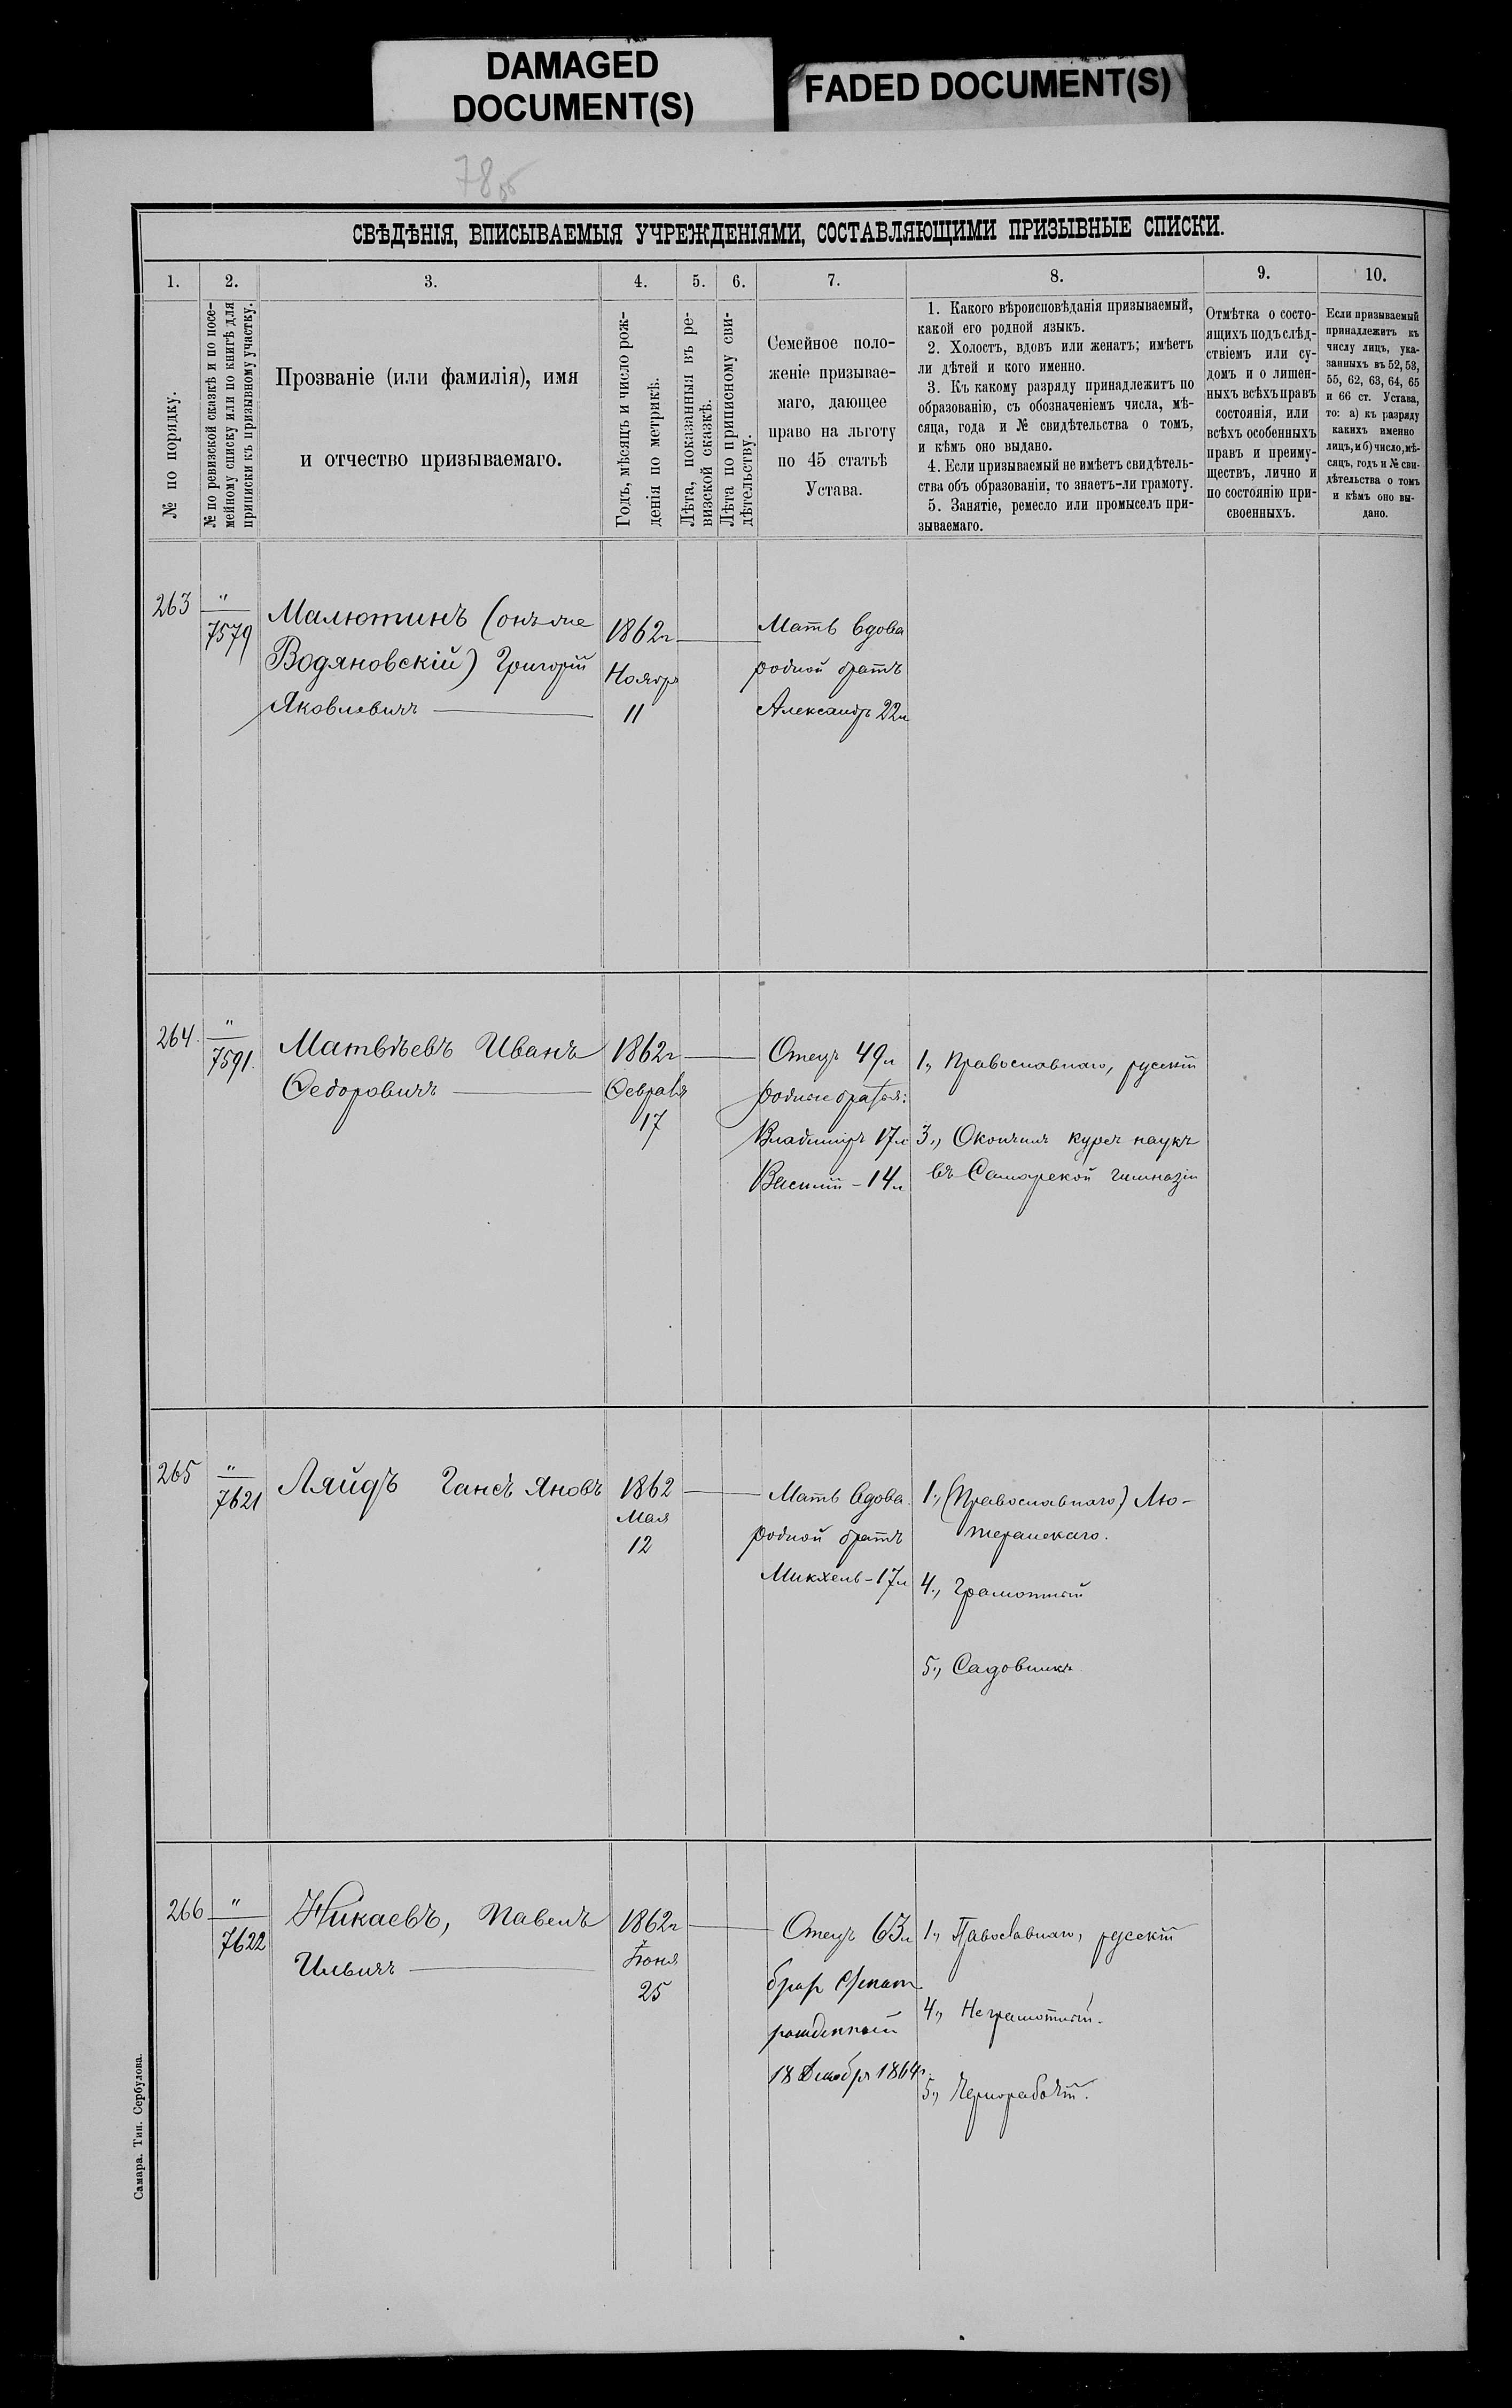 DAMAGED
DOCUMENT(S)
FADED DOCUMENT(S)
78 об
СВѢДѢНІЯ, ВПИСЫВАЕМЫЯ УЧРЕЖДЕНІЯМИ, СОСТАВЛЯЮЩИМИ ПРИЗЫВНЫЕ СПИСКИ.
1.
2.
3.
4.
5.
6.
7.
8.
9.
10.
№ по порядку.
№ по ревизской сказкѣ и по посе-
мейному списку или по книгѣ для
приписки къ призывному участку.
Прозваніе (или фамилія), имя
и отчество призываемаго.
Годъ, мѣсяцъ и число рож-
денія по метрикѣ.
Лѣта, показанныя въ ре-
визской сказкѣ.
Лѣта по приписному сви-
дѣтельству.
Семейное поло-
женіе призывае-
маго, дающее
право на льготу
по 45 статьѣ
Устава.
1. Какого вѣроисповѣданія призываемый,
какой его родной языкъ.
2. Холостъ, вдовъ или женатъ; имѣетъ
ли дѣтей и кого именно.
3. Къ какому разряду принадлежитъ по
образованію, съ обозначеніемъ числа, мѣ-
сяца, года и № свидѣтельства о томъ,
и кѣмъ оно выдано.
4. Если призываемый не имѣетъ свидѣтель-
ства объ образованіи, то знаетъ-ли грамоту.
5. Занятіе, ремесло или промыселъ при-
зываемаго.
Отмѣтка о состо-
ящихъ подъ слѣд-
ствіемъ или су-
домъ и о лишен-
ныхъ всѣхъ правъ
состоянія, или
всѣхъ особенныхъ
правъ и преиму-
ществъ, лично и
по состоянію при-
своенныхъ.
Если призываемый
принадлежитъ къ
числу лицъ, ука-
занныхъ въ 52, 53,
55, 62, 63, 64, 65
и 66 ст. Устава,
то: а) къ разряду
какихъ именно
лицъ, и б) число, мѣ-
сяцъ, годъ и № сви-
дѣтельства о томъ
и кѣмъ оно вы-
дано.
263
"
7579
Малютинъ (онъ же
Водяновскій) Григорій
Яковлевичъ
1862г
Ноября
11
Мать вдова
родной братъ
Александръ 22л
264.
"
7591.
Матвѣевъ Иванъ
Ѳедоровичъ
1862г
Февраля
17
Отецъ 49л
родные братья:
Владиміръ 17л
Василій - 14л
1., Православнаго, русскій
3., Окончилъ курсъ наукъ
въ Самарской гимназіи
265
"
7621
Ляйдъ Гансъ Яновъ
1862
Мая
12
Мать вдова.
родной братъ
Микхель - 17л
1., (Православнаго) Лю-
теранскаго.
4., Грамотный
5., Садовникъ
266
"
7622
Никаевъ, Павелъ
Ильичъ
1862г
Іюня
25
Отецъ 63л
братъ Игнатій
рожденный
18 Декабря 1864г.
1., Православнаго, русскій
4., Неграмотный.
5., Чернорабочій.
Самара. Тип. Сербулова.